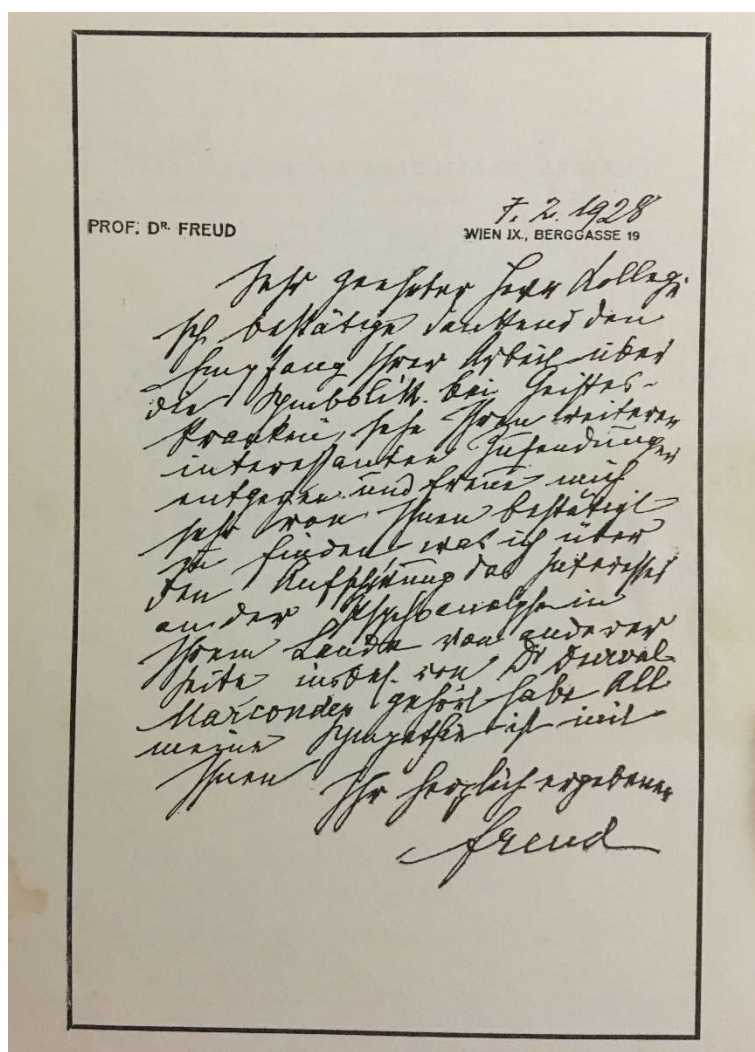 7. 2. 1928
PROF. DR. FREUD
WIEN IX., BERGGASSE 19
Sehr geehrter Herr Kollege
Ich bestätige dankend den
Empfang Ihrer Arbeit über
die Symbolik bei Geistes-
kranken, sehe Ihren weiteren
interessanten Zusendungen
entgegen und freue mich
sehr von Ihnen bestätigt
zu finden was ich über
den Aufschwung des Interesses
an der Psychoanalyse in
Ihrem Lande von anderer
Seite insbes. von Dr Durval
Marcondes gehört habe All
meine Sympathie ist mit
Ihnen Ihr herzlich ergebener
Freud